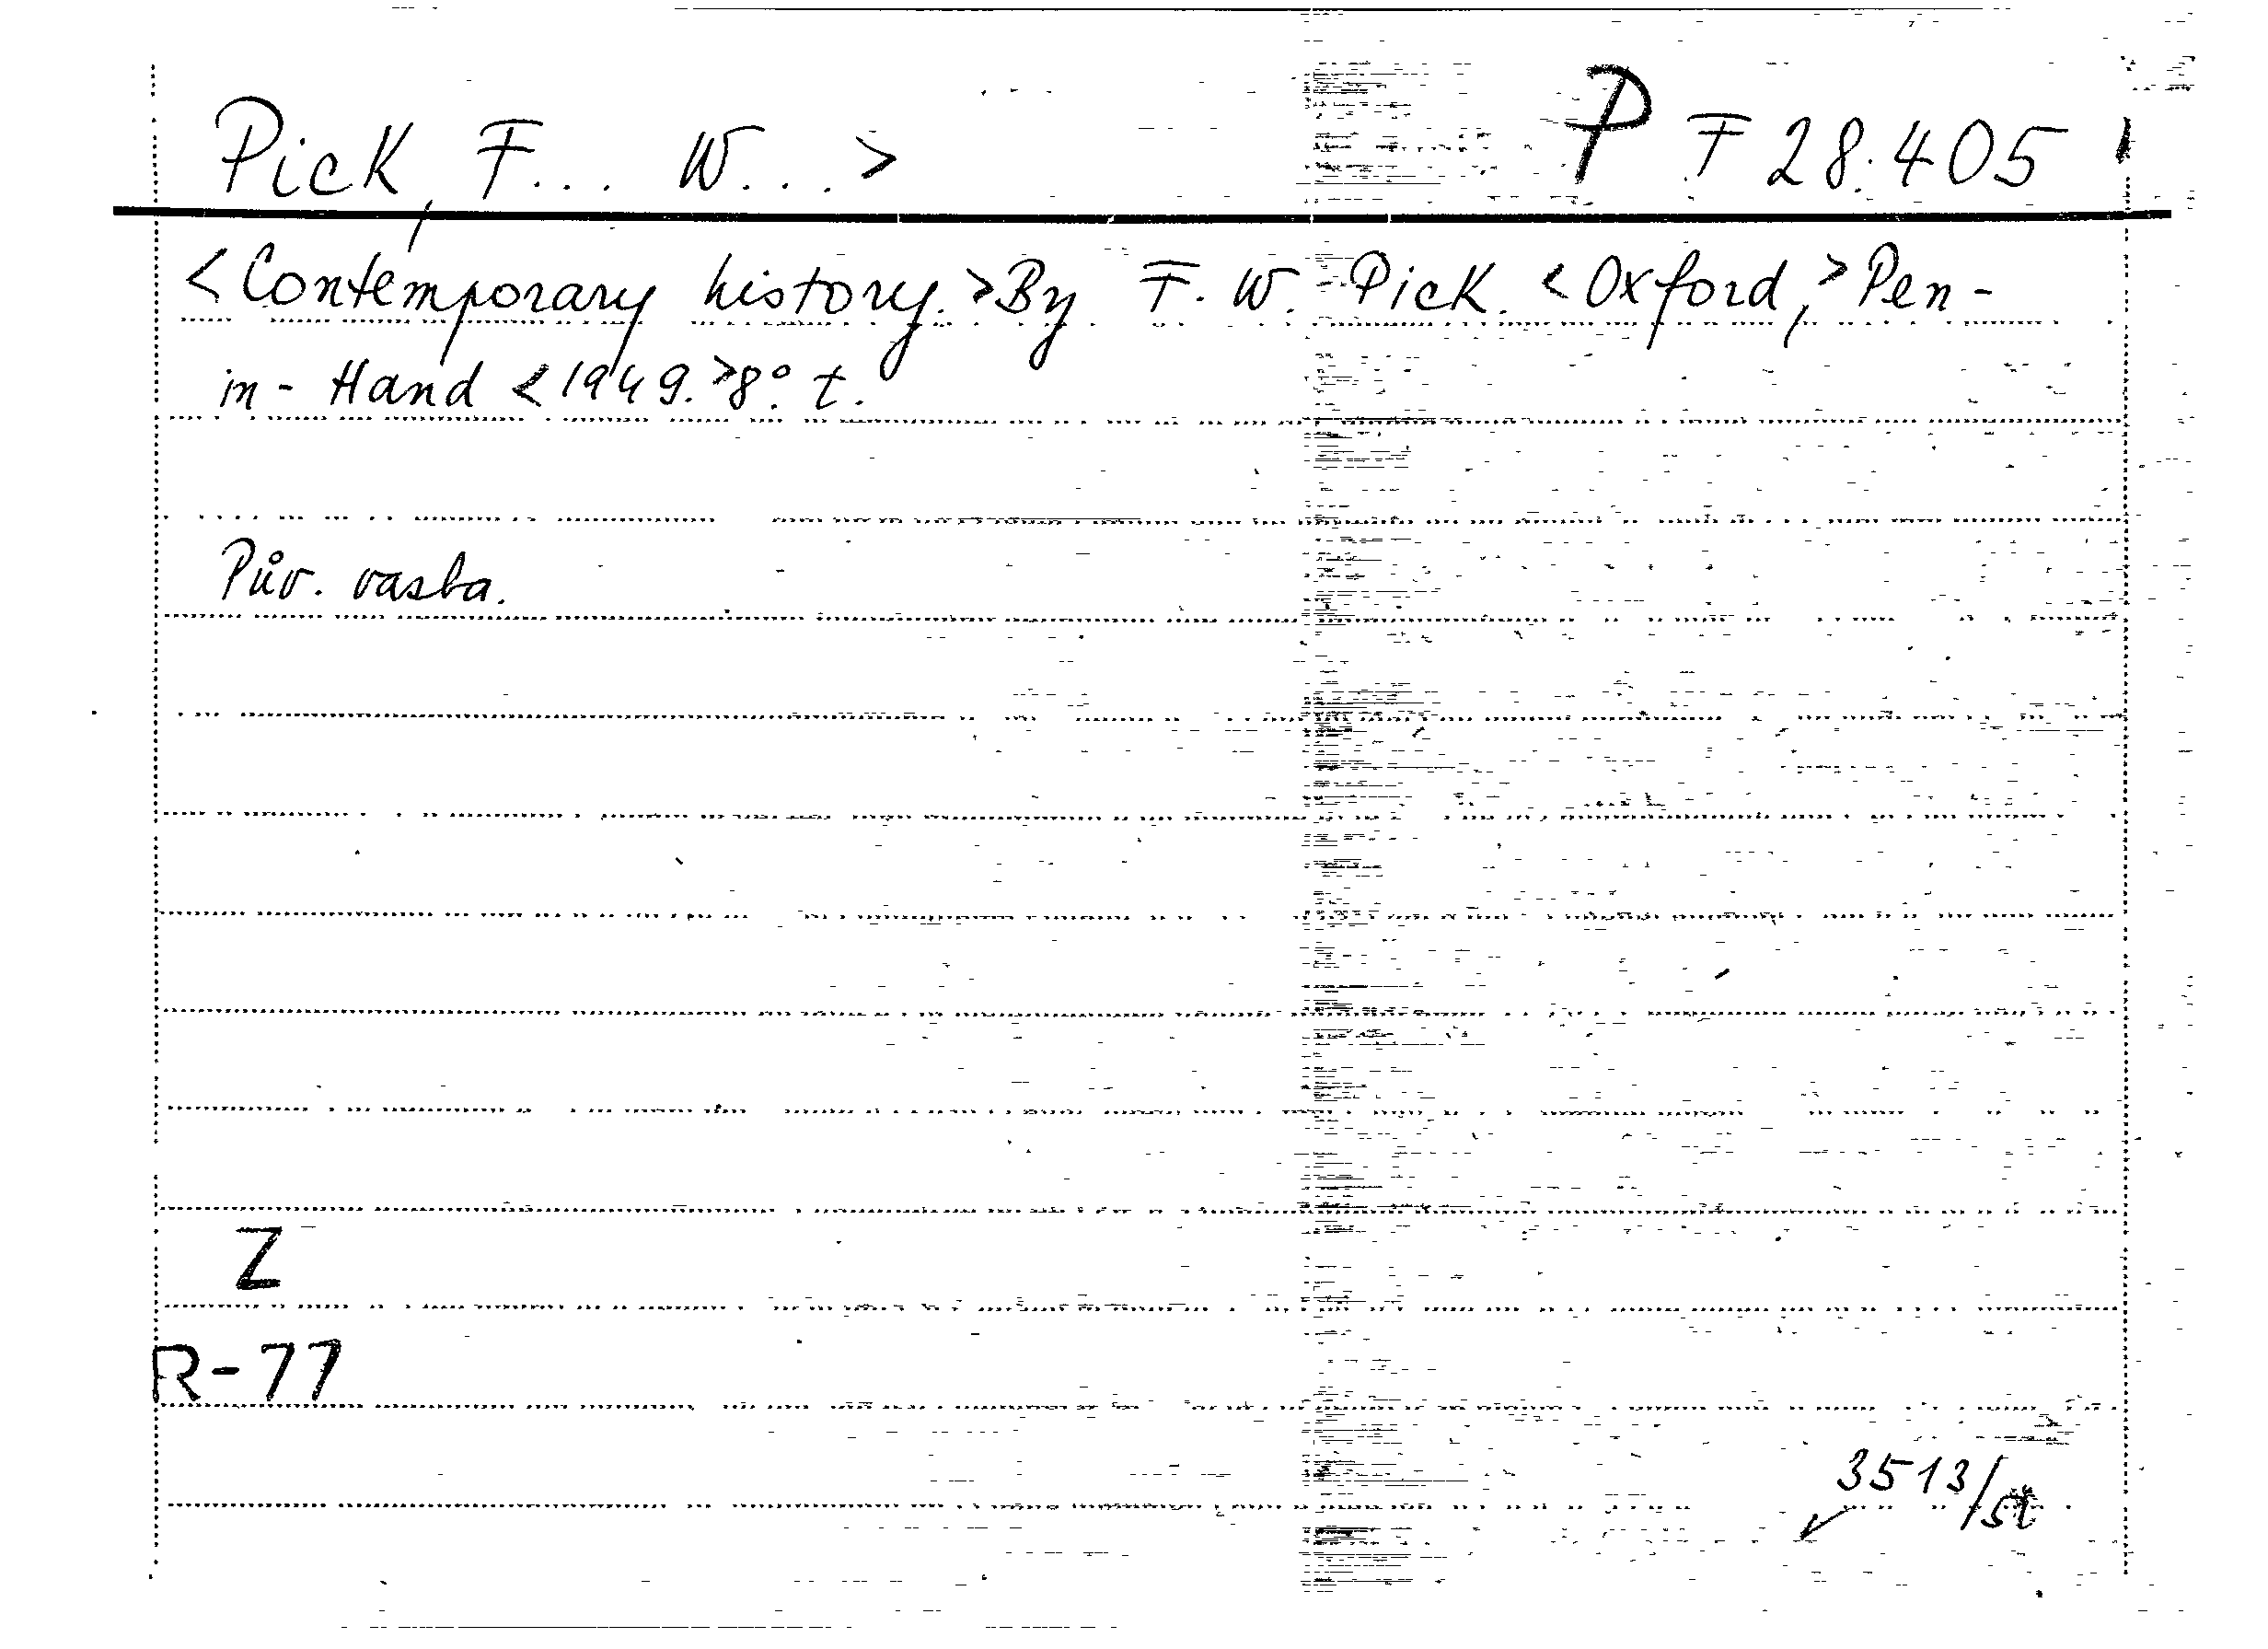 Pick, F... W...> P F 28.405
<Contemporary history.> By F. W. Pick. <Oxford,> Pen-
in-Hand <1949.> 8° t.
Pův. vasba.
Z
R-77
3513/st